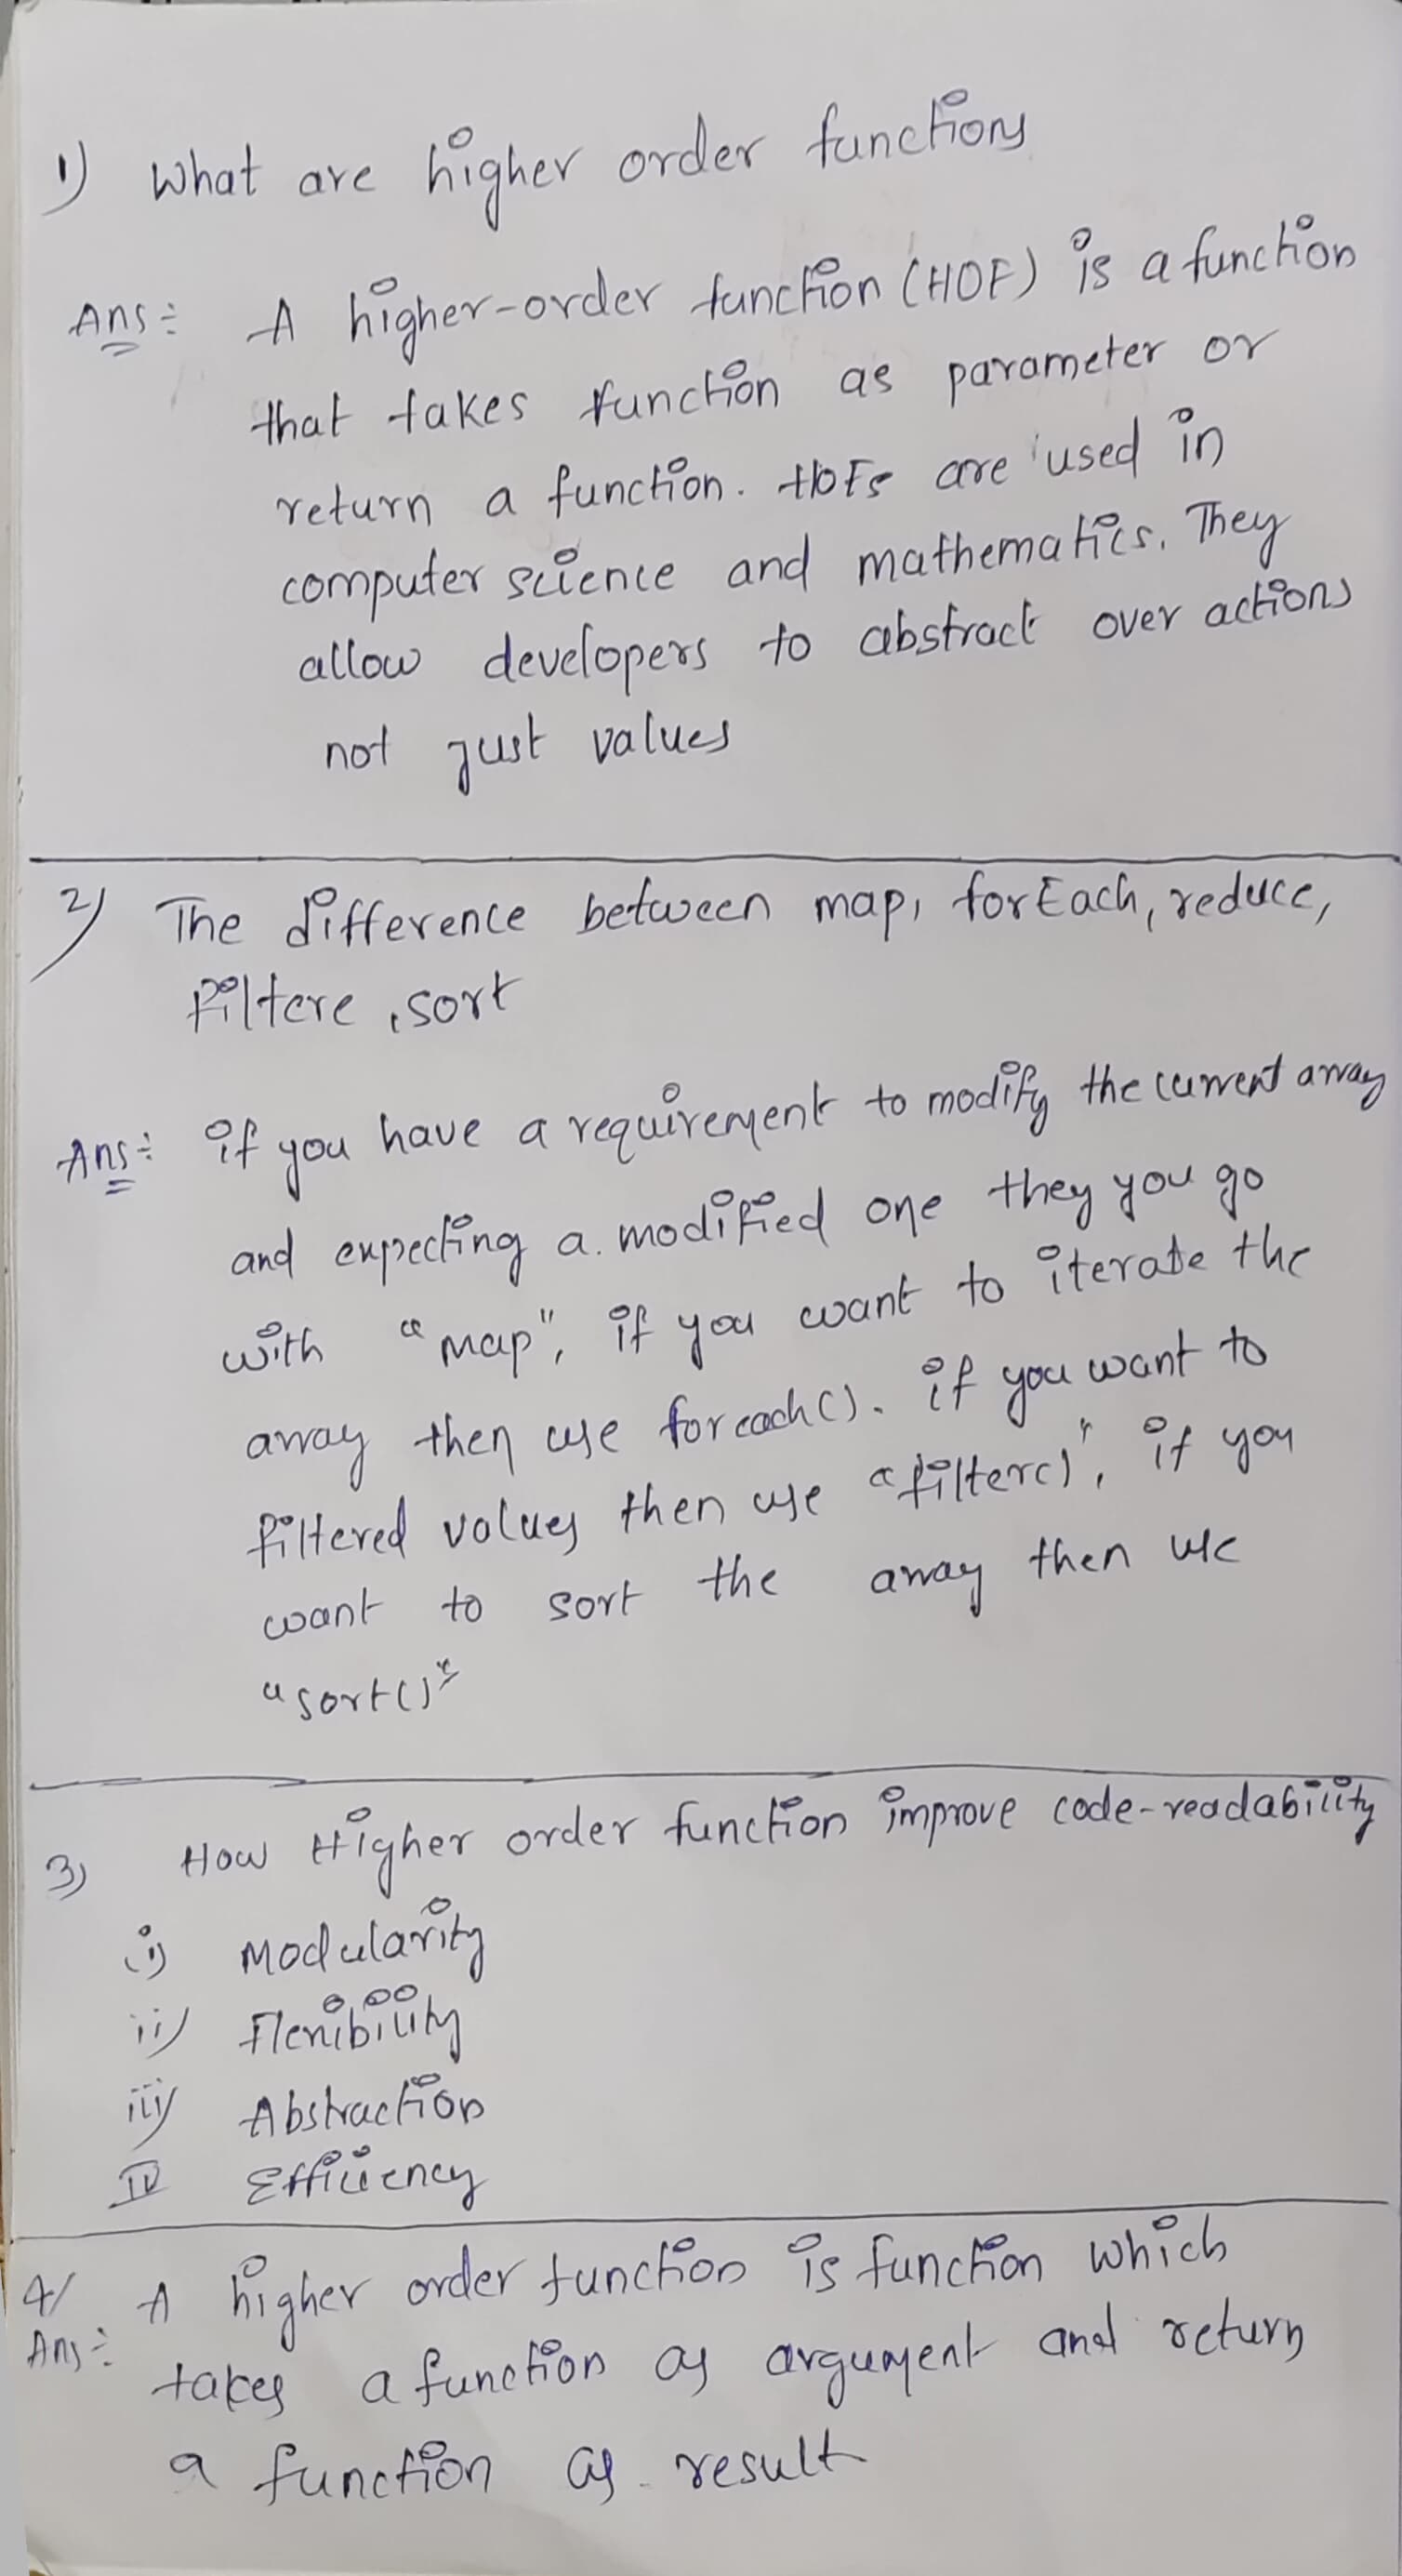 1) What are higher order functions
Ans:- A higher-order function (HOF) is a function
that takes function as parameter or
return a function. HOFs are used in
computer science and mathematics. They
allow developers to abstract over actions
not just values
2) The difference between map, forEach, reduce,
filtere, sort
Ans:- if you have a requirement to modify the current array
and expecting a modified one they you go
with "map", if you want to iterate the
array then use foreach(). if you want to
filtered values then use "filter()", if you
want to sort the array then use
"sort()"
3) How Higher order function improve code-readability
(i) Modularity
ii) Flexibility
iii) Abstraction
IV Efficiency
4) A higher order function is function which
Ans:- takes a function as argument and return
a function as result